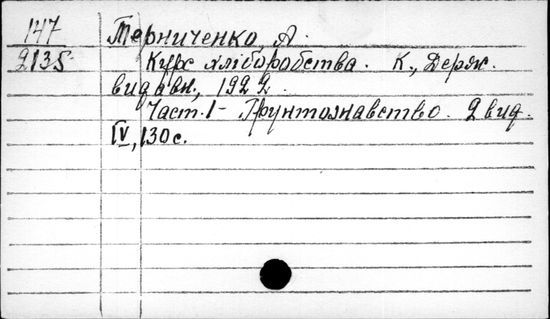 147 Терниченко А.
2135 Курс хліборобства. К., Держ.
видавн., 1922.
Част. 1- Ґрунтознавство. 2 вид.
IV, 130 с.